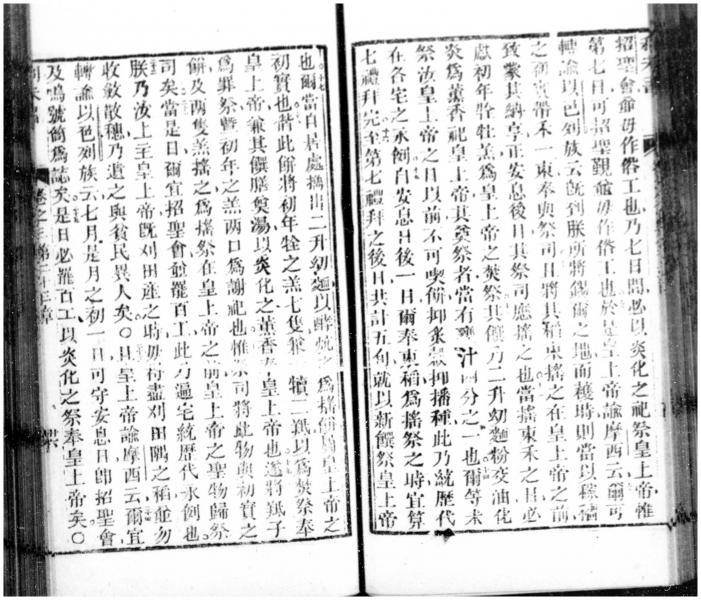 招聖會爾毋作俗工也乃七日間必以炎化之祀祭皇上帝惟
第七日可招聖覲爾毋作俗工也於是皇上帝諭摩西云爾可
轉諭以色列族云既到朕所將錫爾之地而穫時則當以稼穡
之初實帶禾一束奉與祭司且將其稻束搖之在皇上帝之前
致蒙其納享正安息後日其祭司應搖之也當搖束禾之日必
獻初年牷牡羔爲皇上帝之焚祭其饌乃二升幼麵粉交油化
炎爲薰香祀皇上帝其奠祭者當有 汁四分之一也爾等未
祭汝皇上帝之日以前不可喫餅抑 穀抑播種此乃統歷代
在各宅之永例自安息日後一日爾奉束稻爲搖祭之時宜算
七禮拜完至第七禮拜之後日共計五旬就以新饌祭皇上帝
也爾當自居處攜出二升幼麵以酵 之爲搖餅爲皇上帝之
初實也偕此餅將初年牷之羔七隻兼 犢二羝以爲焚祭奉
皇上帝兼其饌膳奠湯以炎化之薰香 皇上帝也遂將羝子
爲罪祭暨初年之羔兩口爲謝祀也惟祭司將此物與初實之
餅及兩隻羔搖之爲搖祭在皇上帝之前皇上帝之聖物歸祭
司矣當是日爾宜招聖會爾罷百工此乃遍宅統歷代永例也
朕乃汝上主皇上帝既刈田產之時毋得盡刈田隅之稻爾勿
收斂散穗乃遺之與貧民異人矣○且皇上帝諭摩西云爾宜
轉諭以色列族云七月是月之初一日可守安息日卽招聖會
及鳴號筒爲誌矣是日必罷百工以炎化之祭奉皇上帝矣○
卷之三第二十三章